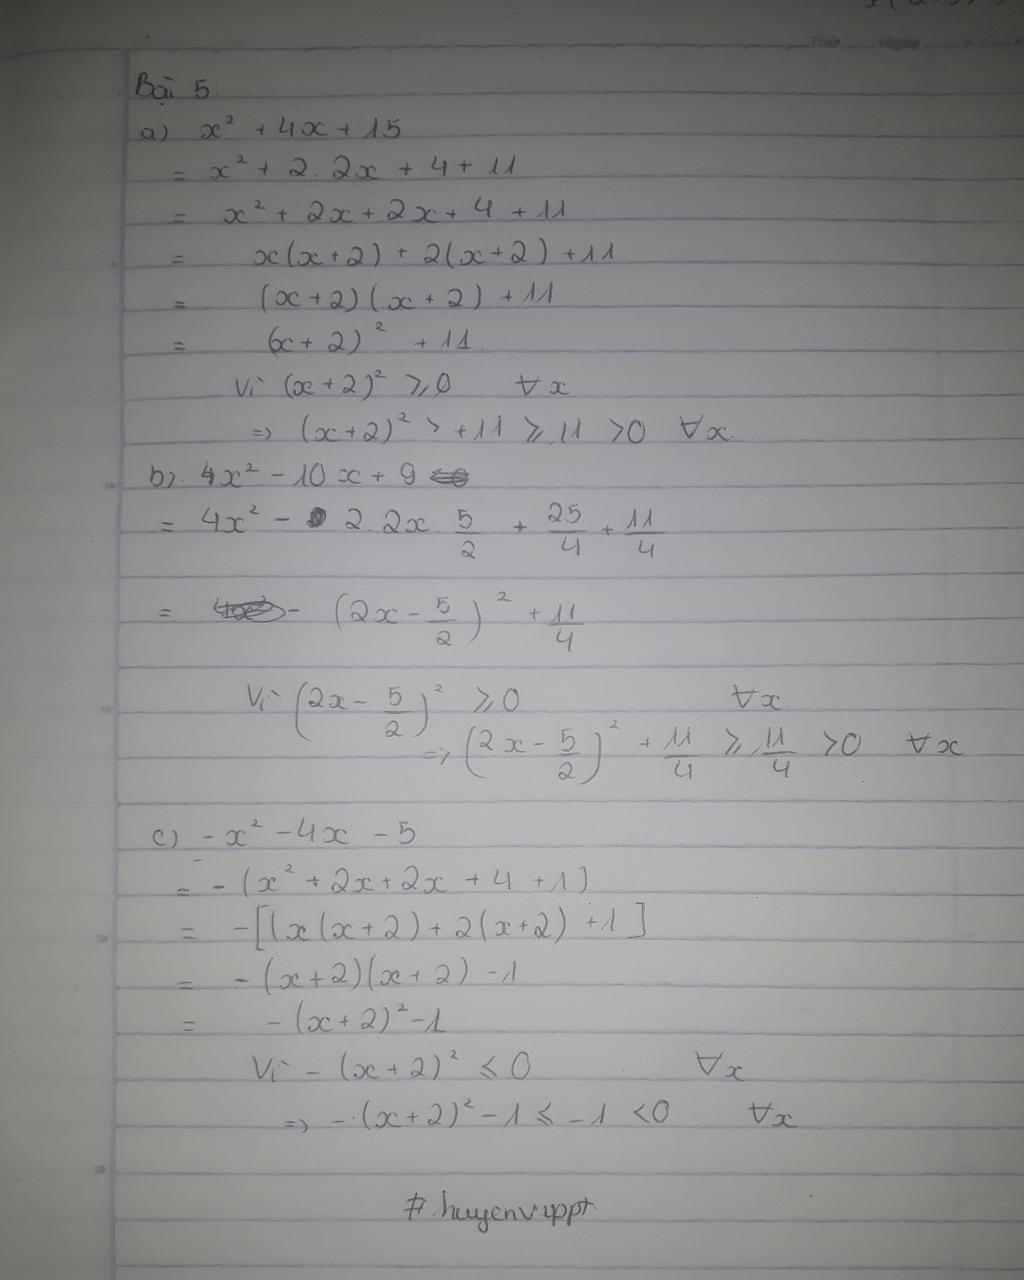 Thứ ...... Ngày ...........
Bài 5:
a) x² + 4x + 15
= x² + 2. 2x + 4 + 11
= x² + 2x + 2x + 4 + 11
= x(x+2) + 2(x+2) + 11
= (x+2)(x+2) + 11
= (x+2)² + 11.
Vì (x+2)² ⩾ 0 ∀x
=> (x+2)² > +11 ⩾ 11 > 0 ∀x.
b). 4x² - 10x + 9
= 4x² - 2. 2x. 5/2 + 25/4 + 11/4
= - (2x - 5/2)² + 11/4
Vì (2x - 5/2)² ⩾ 0 ∀x
=> (2x - 5/2)² + 11/4 ⩾ 11/4 > 0 ∀x
c) -x² - 4x - 5
= - (x² + 2x + 2x + 4 + 1)
= -[(x(x+2) + 2(x+2) + 1]
= - (x+2)(x+2) - 1
= - (x+2)² - 1
Vì - (x+2)² ⩽ 0 ∀x
=> - (x+2)² - 1 ⩽ -1 < 0 ∀x
#huyenvippt